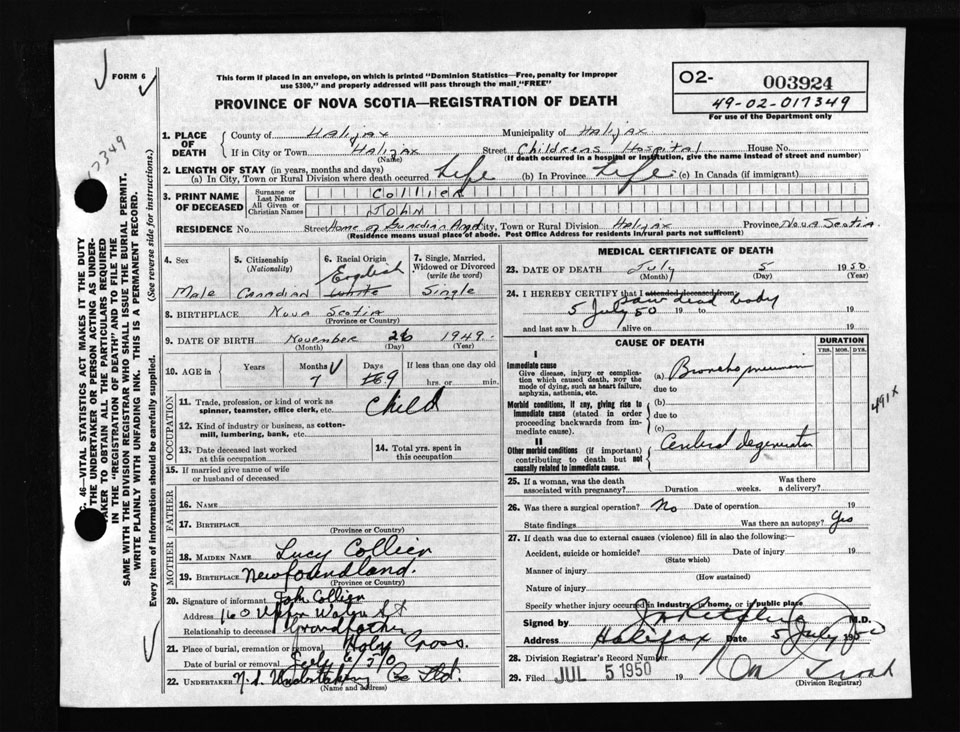 FORM 6
This form if placed in an envelope, on which is printed "Dominion Statistics—Free, penalty for improper
use $300," and properly addressed will pass through the mail "FREE"
PROVINCE OF NOVA SCOTIA—REGISTRATION OF DEATH
O2- 003924
49-02-017349
For use of the Department only
7349
C. 46—VITAL STATISTICS ACT MAKES IT THE DUTY
THE UNDERTAKER OR PERSON ACTING AS UNDER-
TAKER TO OBTAIN ALL THE PARTICULARS REQUIRED
IN THE "REGISTRATION OF DEATH" AND TO FILE THE
SAME WITH THE DIVISION REGISTRAR WHO SHALL ISSUE THE BURIAL PERMIT.
WRITE PLAINLY WITH UNFADING INK. THIS IS A PERMANENT RECORD.
Every item of information should be carefully supplied. (See reverse side for instructions.)
1. PLACE OF DEATH
County of Halifax Municipality of Halifax
If in City or Town Halifax Street Childrens Hospital House No.
(Name) (If death occurred in a hospital or institution, give the name instead of street and number)
2. LENGTH OF STAY (in years, months and days)
(a) In City, Town or Rural Division where death occurred Life (b) In Province Life (c) In Canada (if immigrant)
3. PRINT NAME OF DECEASED
Surname or Last Name Collier
All Given or Christian Names John
RESIDENCE No. Street Home of Guardian Angel City, Town or Rural Division Halifax Province Nova Scotia
(Residence means usual place of abode. Post Office Address for residents in rural parts not sufficient)
4. Sex
Male
5. Citizenship (Nationality)
Canadian
6. Racial Origin
English
White
7. Single, Married, Widowed or Divorced (write the word)
Single
8. BIRTHPLACE Nova Scotia
(Province or Country)
9. DATE OF BIRTH November 26 1949
(Month) (Day) (Year)
10. AGE in Years Months Days If less than one day old
7 9 hrs. or min.
OCCUPATION
11. Trade, profession, or kind of work as
spinner, teamster, office clerk, etc. Child
12. Kind of industry or business, as cotton-
mill, lumbering, bank, etc.
13. Date deceased last worked
at this occupation
14. Total yrs. spent in
this occupation
15. If married give name of wife
or husband of deceased
FATHER
16. NAME
17. BIRTHPLACE
(Province or Country)
MOTHER
18. MAIDEN NAME Lucy Collier
19. BIRTHPLACE Newfoundland.
(Province or Country)
20. Signature of informant John Collier
Address 160 Upper Water St
Relationship to deceased Grandfather
21. Place of burial, cremation or removal Holy Cross.
Date of burial or removal July 6/50
22. UNDERTAKER N.S. Undertaking Co Ltd.
(Name and address)
MEDICAL CERTIFICATE OF DEATH
23. DATE OF DEATH July 5 1950
(Month) (Day) (Year)
24. I HEREBY CERTIFY that I attended deceased from saw dead body
5 July 50 19 to 19
and last saw h alive on 19
CAUSE OF DEATH
DURATION
YRS. MOS. DYS.
I
Immediate cause
Give disease, injury or complica-
tion which caused death, not the
mode of dying, such as heart failure,
asphyxia, asthenia, etc.
(a) Broncho pneumonia
due to
Morbid conditions, if any, giving rise to
immediate cause (stated in order
proceeding backwards from im-
mediate cause).
(b)
due to
(c)
II
Other morbid conditions (if important)
contributing to death but not
causally related to immediate cause.
Cerebral degeneration
491x
25. If a woman, was the death
associated with pregnancy? Duration weeks. Was there
a delivery?
26. Was there a surgical operation? No Date of operation 19
State findings Was there an autopsy? Yes
27. If death was due to external causes (violence) fill in also the following:—
Accident, suicide or homicide? Date of injury 19
(State which)
Manner of injury
(How sustained)
Nature of injury
Specify whether injury occurred in industry, in home, or in public place
Signed by M.D.
Address Halifax Date 5 July 1950
28. Division Registrar's Record Number
29. Filed JUL 5 1950 19
(Division Registrar)